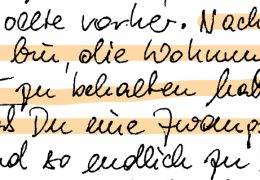 ollte vorher. Nach
bin, die Wohnun
zu behalten hab
Du eine Zwangs
nd so endlich zu